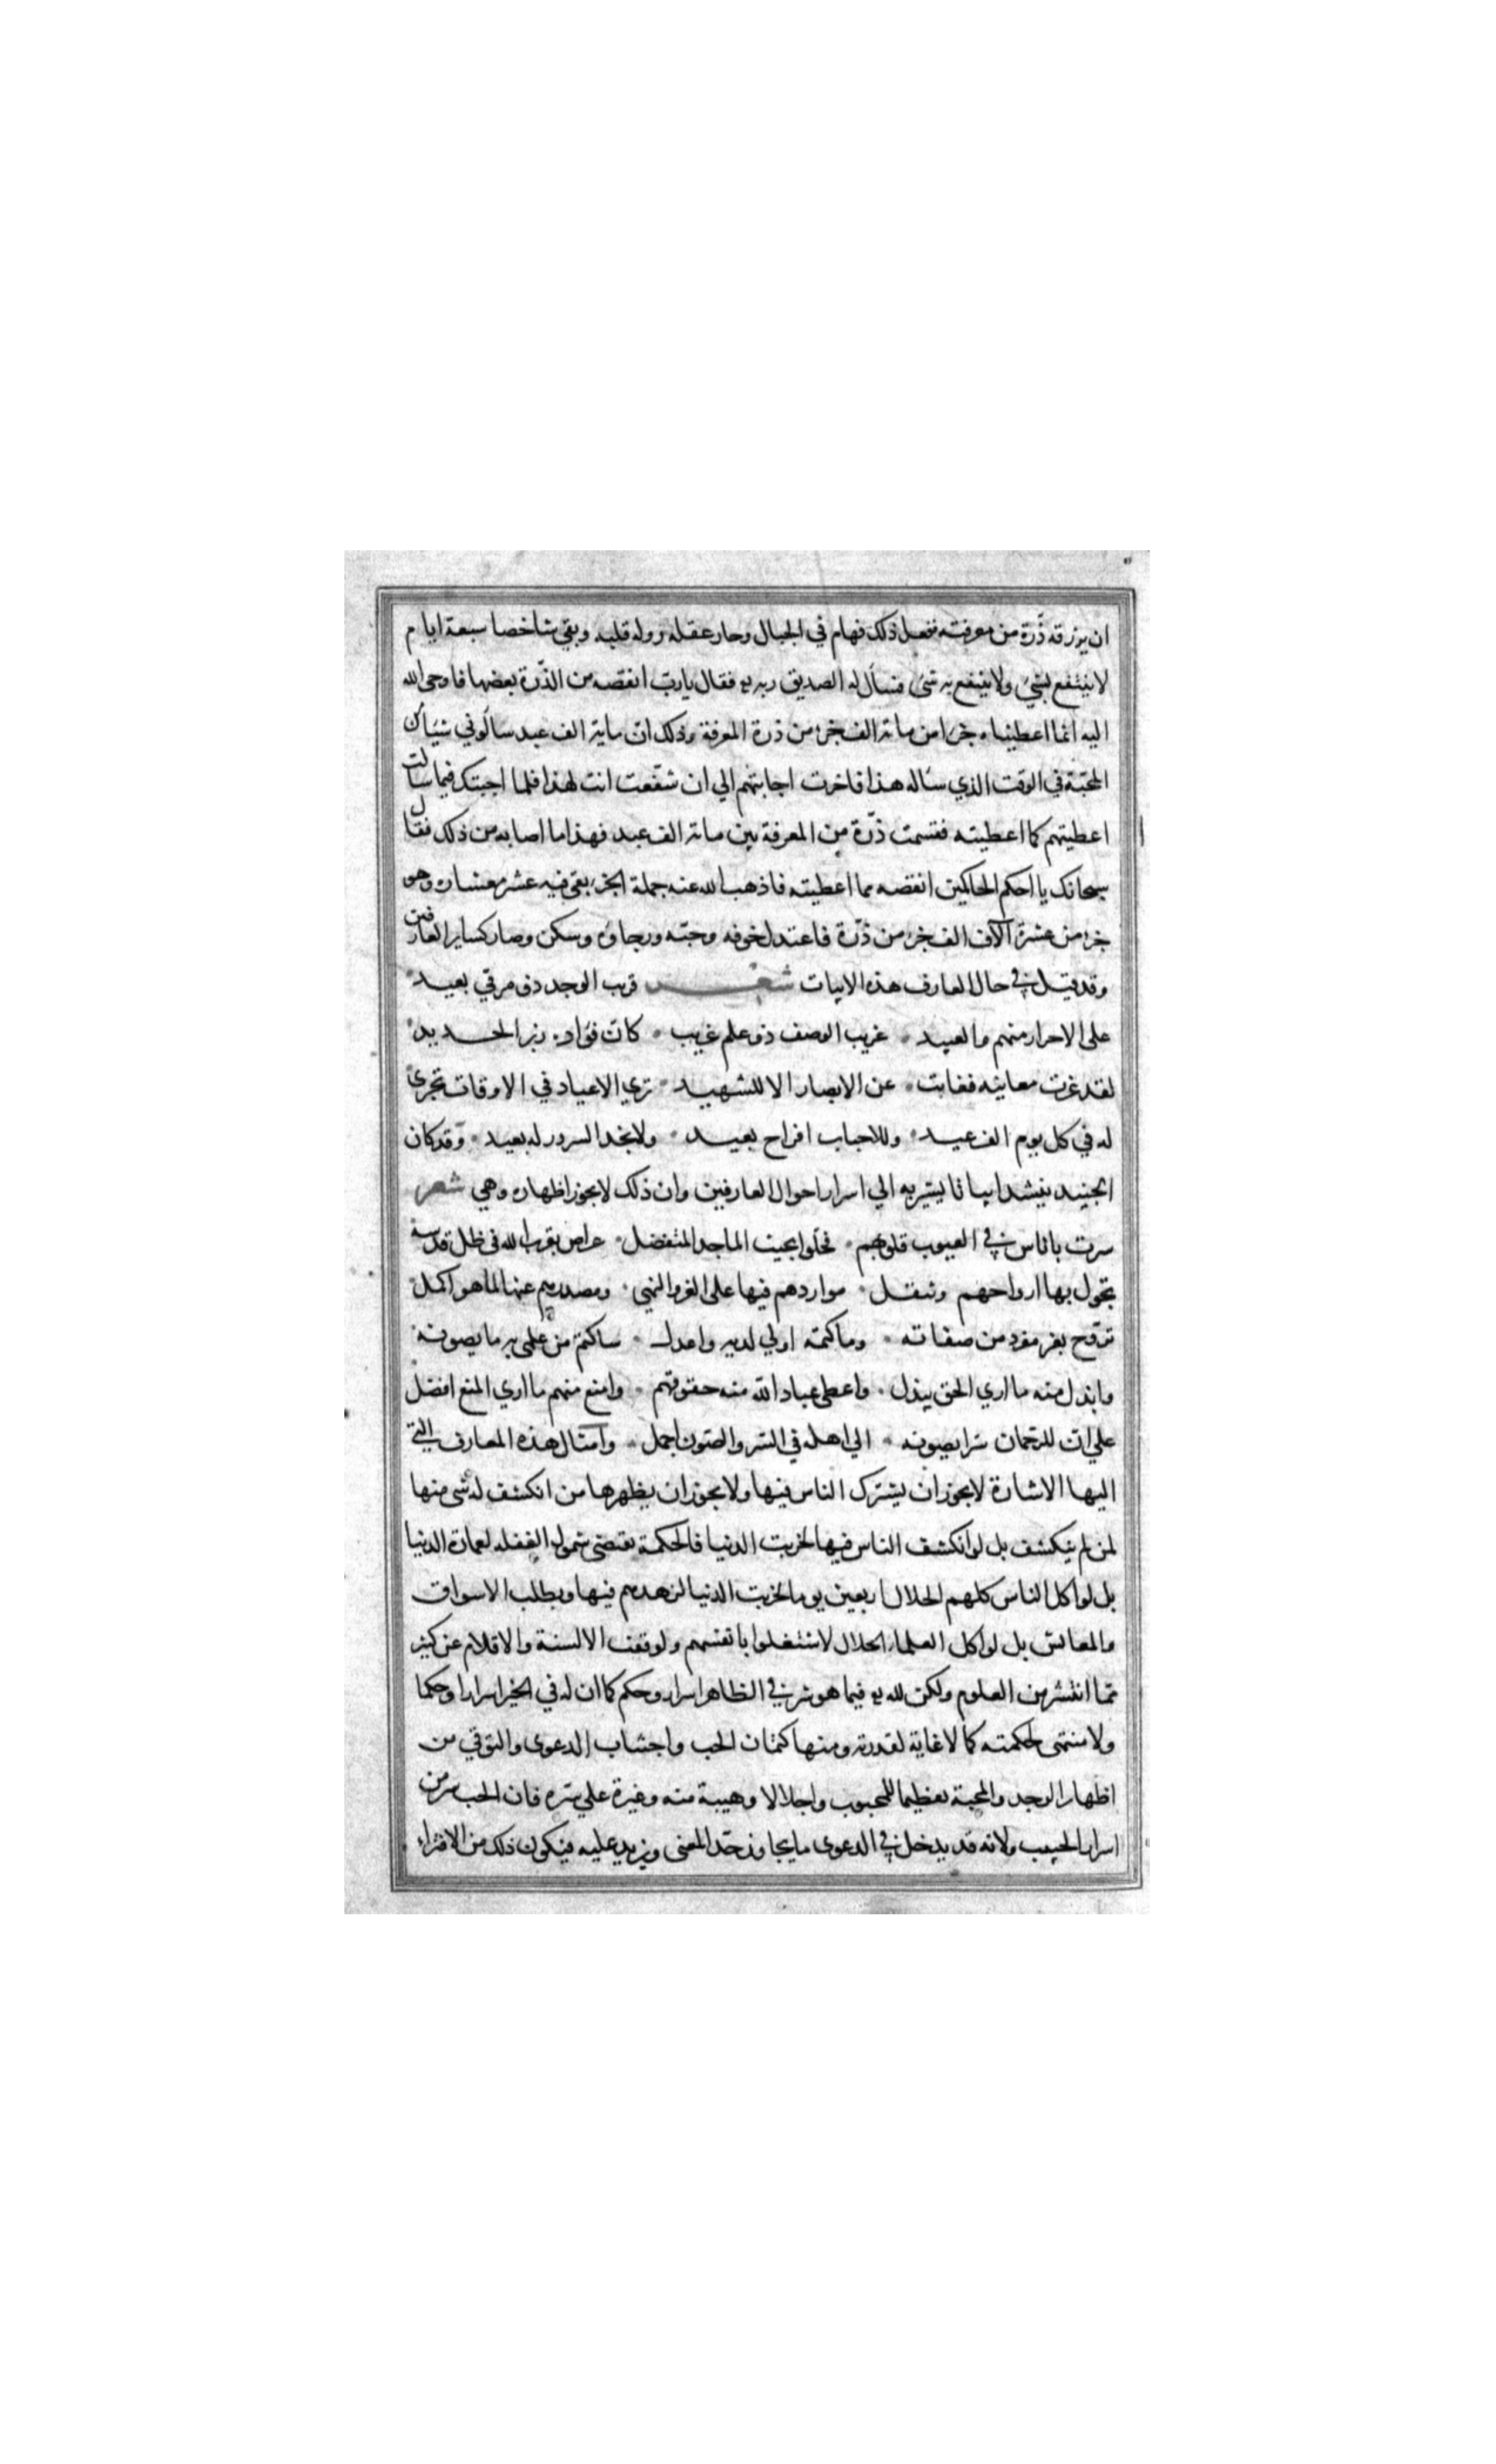 ان يرزقه ذرّة من معرفته ففعل ذلك فهام في الجبال وحار عقله ووله قلبه وبقي شاخصا سبعة ايام
لا ينتفع بشئ ولا ينتفع به شئ فسأل له الصديق ربه فقال يا ربّ انقصه من الذّرة بعضها فاوحى الله
اليه انما اعطيناه جزءا من مائة الف جزء من ذرة المعرفة وذلك ان ماية الف عبد سألوني شيأ من
المحبّة في الوقت الذي سأله هذا فاخرت اجابتهم الي ان شفّعت انت لهذا فلما اجبتك فيما سألت
اعطيتهم كما اعطيته فقسمت ذرّة من المعرفة بين مائة الف عبد فهذا ما اصابه من ذلك فقال
سبحانك يا احكم الحاكمين انقصه مما اعطيته فاذهب الله عنه جملة الجزء بقي فيه عشر معشاره وهو
جزء من عشرة آلاف الف جزء من ذرّة فاعتدل خوفه وحبّه ورجاؤه وسكن وصار كساير العارفين
وقد قيل في حال العارف هذه الابيات شعر قريب الوجد ذو مرقي بعيد
على الاحرار منهم والعبيد غريب الوصف ذو علم غريب كان فؤاده زبر الحديد
لقد عزت معانيه فغابت عن الابصار الا للشهيد تري الاعياد في الاوقات تجرى
له في كل يوم الف عيد وللاحباب افراح بعيد ولا يجد السرور له بعيد وقد كان
الجنيد ينشد ابياتا يشير به الي اسرار احوال العارفين وان ذلك لا يجوز اظهاره وهي شعر
سرت باناس في الغيوب قلوبهم فحلّوا بحيث الماجد المتفضل عراص بقرب الله في ظل قدسه
تجول بها ارواحهم وتنقل مواردهم فيها على العز والنهي ومصدرهم عنها لما هو اكمل
تروح بعز مفرد من صفاته وما كتمه اولي لديه واعدل ساكتم من علمي به ما يصونه
وابذل منه ما اري الحق يبذل واعطي عباد الله منه حقوقهم وامنع منهم ما اري المنع افضل
علي ان للرحمان سرا يصونه الي اهله في السّر والصّون اجمل وامثال هذه المعارف التي
اليها الاشارة لا يجوز ان يشترك الناس فيها ولا يجوز ان يظهرها من انكشف له شئ منها
لمن لم ينكشف بل لو انكشف الناس فيها لخربت الدنيا فالحكمة تقتضي شمول الغفله لعمارة الدنيا
بل لو اكل الناس كلهم الحلال اربعين يوما لخربت الدنيا لزهدهم فيها وبطلب الاسواق
والمعايش بل لو اكل العلماء الحلال لاشتغلوا بانفسهم ولوقفت الالسنة والاقلام عن كثير
ممّا انتشر من العلوم ولكن لله فيما هو شر في الظاهر اسرار وحكم كما ان له في الخير اسرارا وحكما
ولا منتهى لحكمته كما لا غاية لقدرته ومنها كتمان الحب واجتناب الدعوى والتوقي من
اظهار الوجد والمحبة تعظيما للمحبوب واجلالا وهيبة منه وغيرة علي سره فان الحب سر من
اسرار الحبيب ولانه قد يدخل في الدعوى ما يجاوز حدّ المعنى ويزيد عليه فيكون ذلك من الافتراء